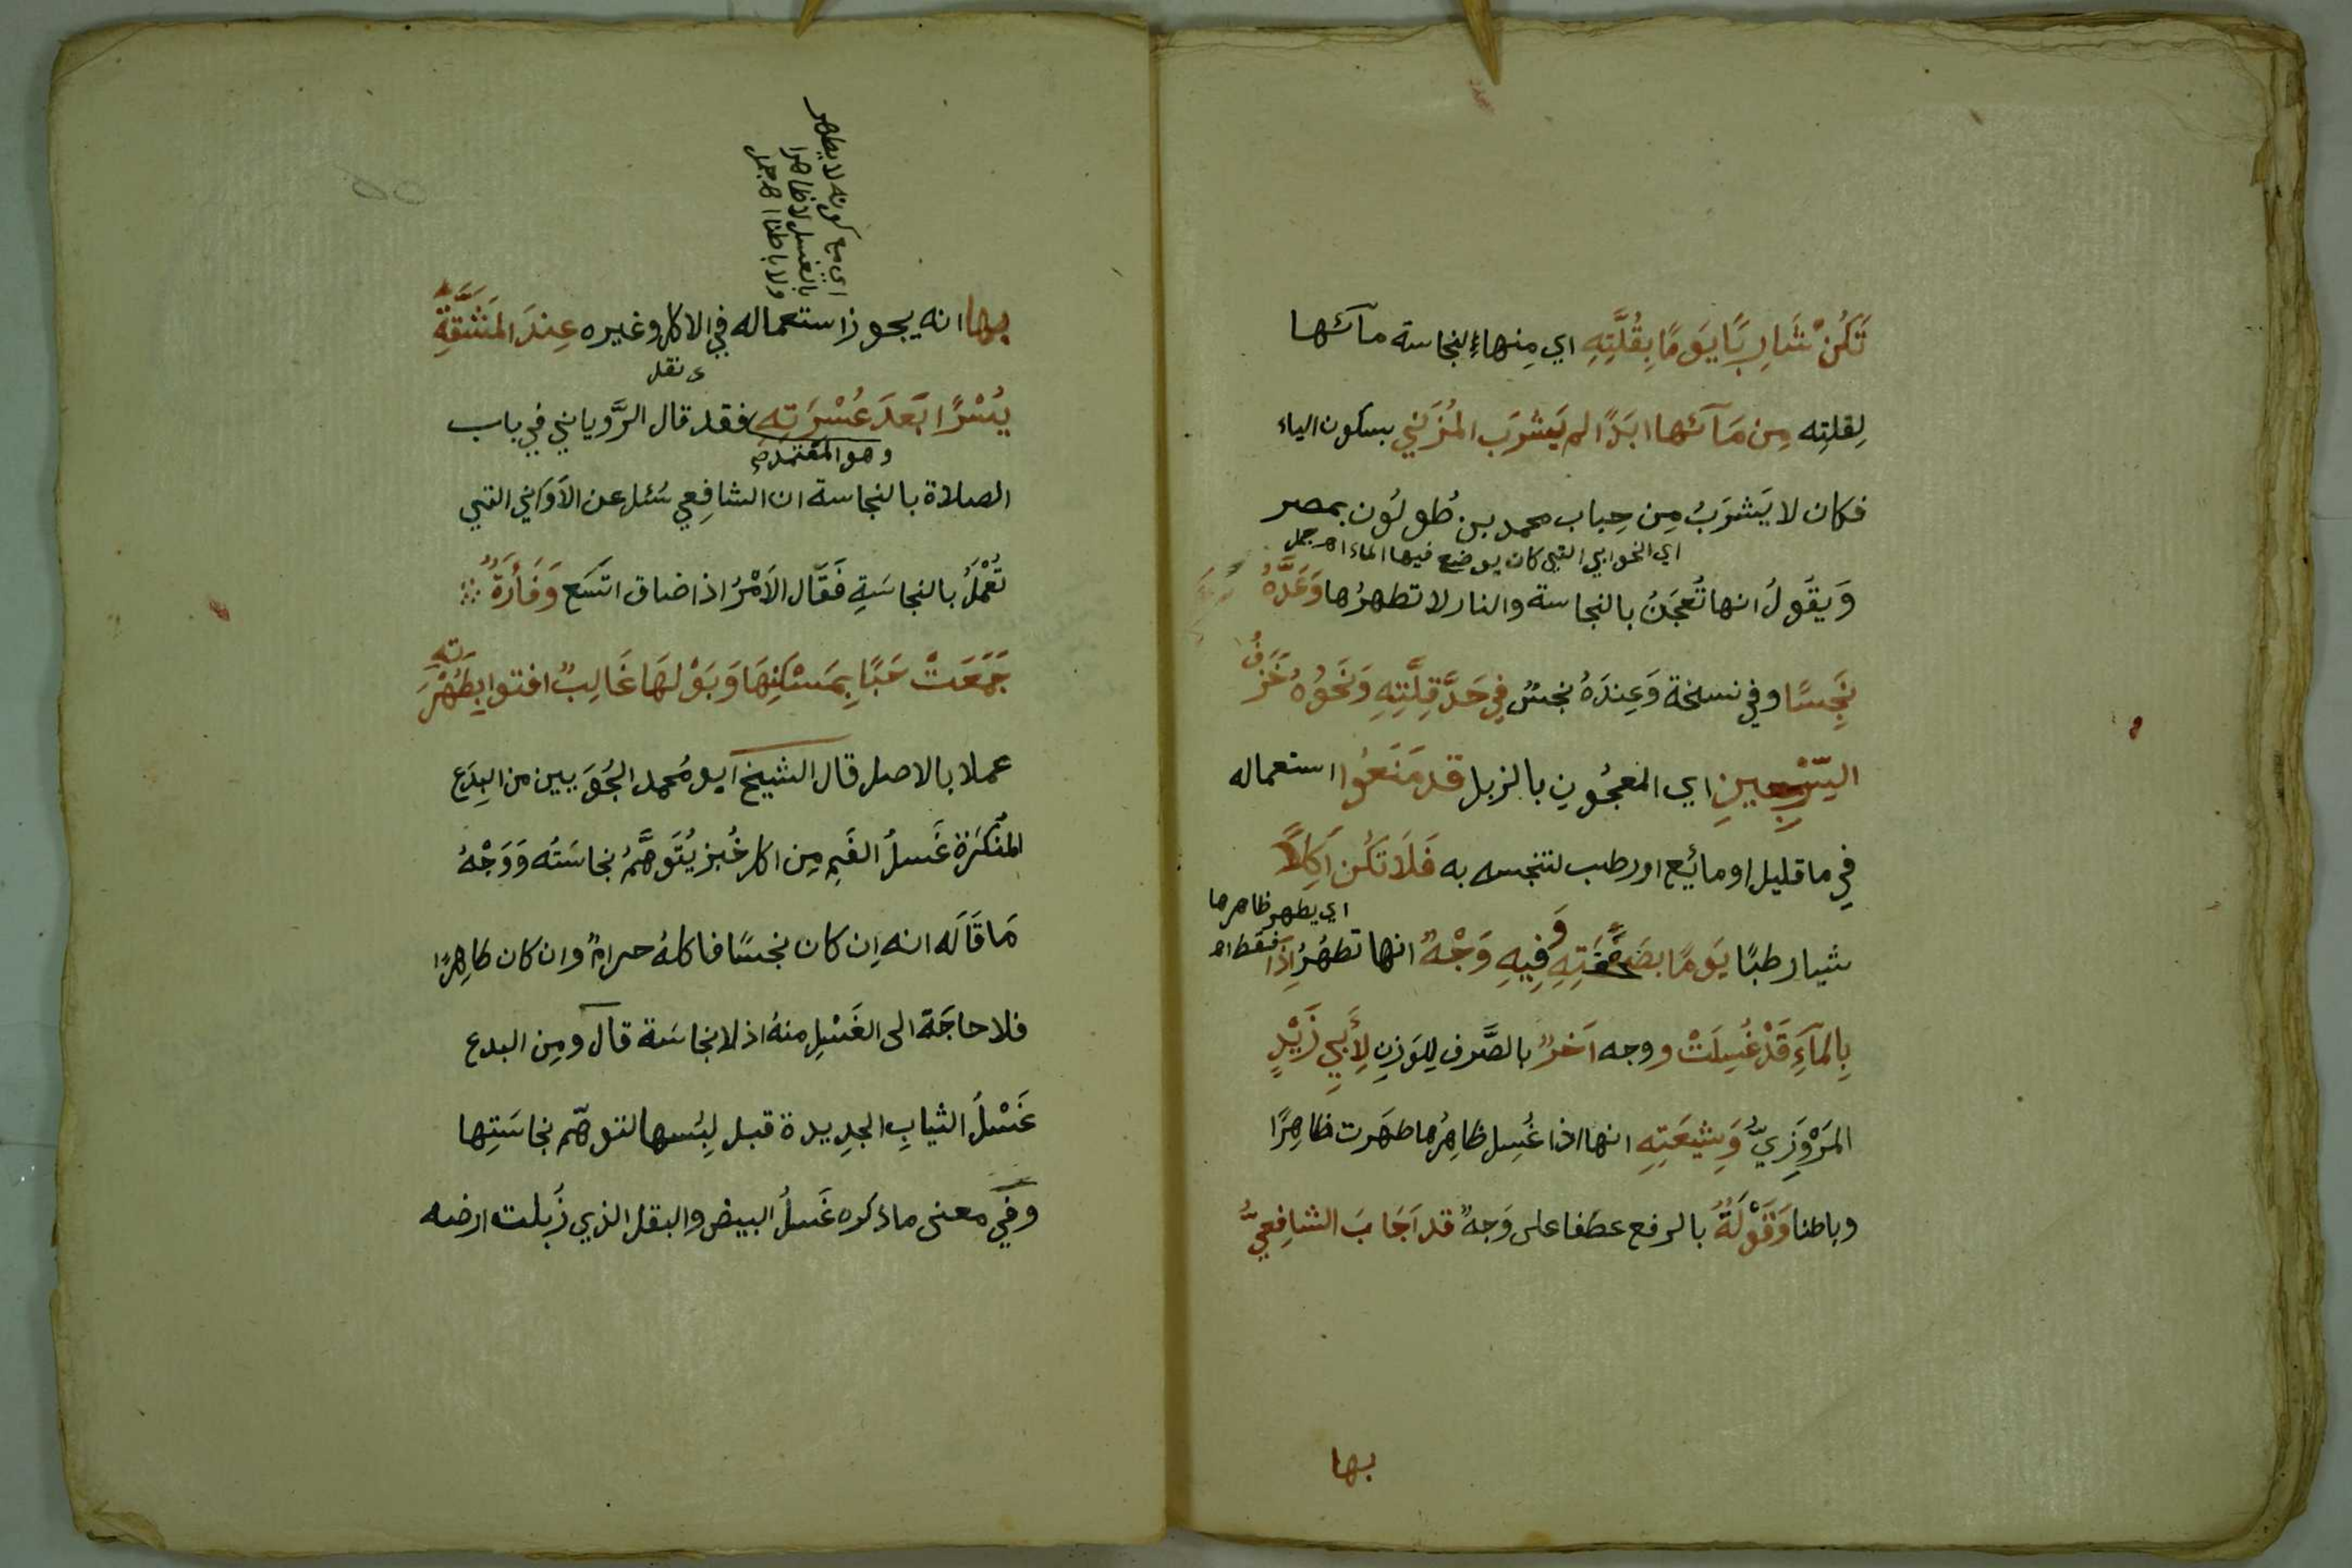 تَكُنْ شَارِبًا يَومًا بِقُلَّتِهِ اي مِنهاءِ لنجاسة مآئها
لِقلتِه مِن مَآئها ابَدًا لم يَشرَب المُزَني بسكون الياء
فكان لا يَشرَبُ مِن حِباب محمد بن طُولُون بمصر
اي الخوابي التي كان يوضع فيها الماء اهـ جمل
وَيقُولُ انها تُعجَنُ بالنجاسة والنار لا تطهرُها وَعَدَّهُ
نَجِسًا وفي نسخة وَعِندَهُ نجسٌ فِي حَدَّ قِلَّتِهِ وَنَحوُهُ خَزَفُ
السّرجينِ اي المعجُونِ بالزبل قد مَنَعُوا استعماله
فِي ما قليل او مائِع او رطب لتنجسه به فَلَا تَكُن آكِلًا
اي يطهر ظاهرها
فقط اهـ
شيا رطبًا يَومًا بصَحفَتِهِ وَفِيهِ وَجْهٌ انها تطهُرُ اِذَا
بِالمآءِ قَدْ غُسِلَتْ ووجه آخرٌ بالصَّرف لِلوَزنِ لِأَبِي زَيْدٍ
المَرْوَزِيِّ وَشِيعَتِهِ انها اذا غُسِل ظاهِرُها طهَرت ظاهِرًا
وباطنا وَقَوْلَةٌ بالرفع عطفا على وَجهٌ قد اَجَابَ الشافِعيُّ
بها
اي مع كونه لا يطهر
بالغسل لا ظاهرا
ولا باطنا اهـ جمل
بها انه يجوز استعماله في الاكل وغيره عِندَ المَشَقَّةِ
يُسْرًا بَعدَ عُسْرَتِهِ فقد قال الرَّوياني في باب
نقل
وهو المعتمد
الصلاة بالنجاسة ان الشافِعي سُئل عن الاَوَاني التي
تُعْمَلُ بالنجاسَةِ فَقَال الاَمْرُ اذا ضاق اتسَع وَفَأرَةٌ
جَمَعَتْ حَبًّا بِمَسْكَنِهَا وَبَوْلهَا غَالِبٌ افتوا بِطُهْرَتِهِ
عملا بالاصل قال الشيخ ابو مُحمد الجُوَيـيين من البِدَع
المُنْكَرَة غَسلُ الفَمِ مِن اكل خُبز يُتَوهَّمُ نجاسَتُه وَوَجْهُ
مَا قَالَه انه اِن كان نجسًا فاكلهُ حرامٌ وان كان طاهِرًا
فلا حاجَة الى الغَسْلِ منهُ اذ لا نجاسَة قال ومِن البدع
غَسْلُ الثيابِ الجدِيدة قبل لِبُسها لتوهّم نجاسَتِها
وفي معنى ما ذكره غَسلُ البيض والبقل الذي زُبلت ارضه